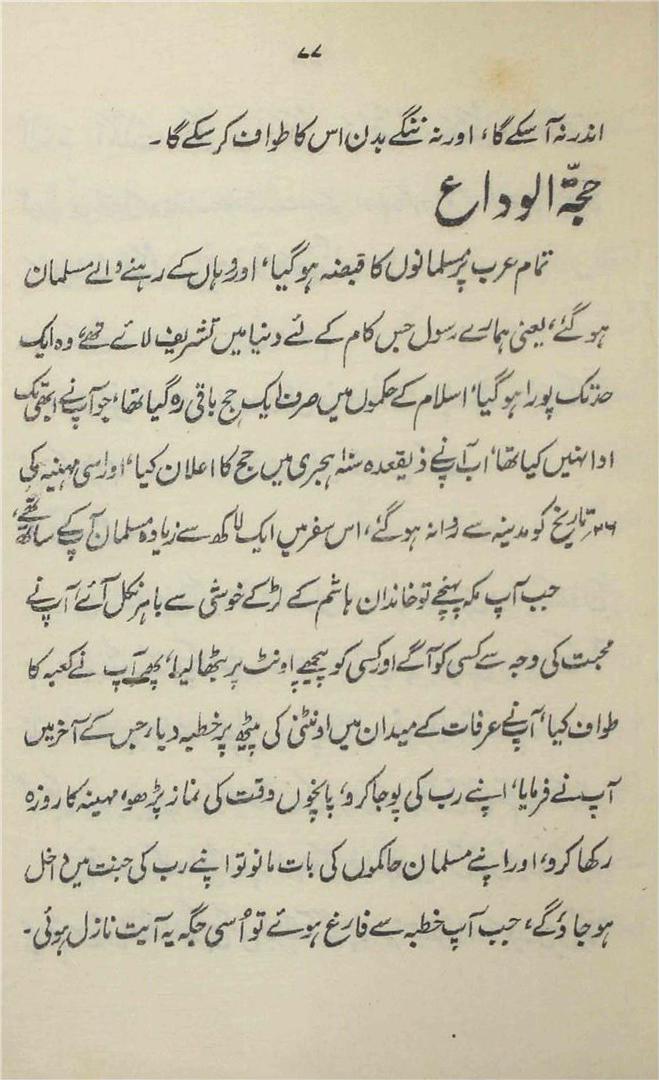 ۷۷
اندر نہ آ سکے گا، اور نہ ننگے بدن اس کا طواف کر سکے گا۔
حجۃ الوداع
تمام عرب پر مسلمانوں کا قبضہ ہو گیا، اور وہاں کے رہنے والے مسلمان
ہو گئے، یعنی ہمارے رسول جس کام کے لئے دنیا میں تشریف لائے تھے، وہ ایک
حد تک پورا ہو گیا، اسلام کے حکموں میں صرف ایک حج باقی رہ گیا تھا، جو آپ نے ابھی تک
ادا نہیں کیا تھا، اب آپ نے ذیقعدہ سنہ ہجری میں حج کا اعلان کیا، اور اسی مہینہ کی
۲۶ تاریخ کو مدینہ سے روانہ ہو گئے، اس سفر میں ایک لاکھ سے زیادہ مسلمان آپ کے ساتھ تھے،
جب آپ مکہ پہنچے تو خاندان ہاشم کے لڑکے خوشی سے باہر نکل آئے، آپ نے
محبت کی وجہ سے کسی کو آگے اور کسی کو پیچھے اونٹ پر بٹھا لیا، پھر آپ نے کعبہ کا
طواف کیا، آپ نے عرفات کے میدان میں اونٹنی کی پیٹھ پر خطبہ دیا، جس کے آخر میں
آپ نے فرمایا، اپنے رب کی پوجا کرو، پانچوں وقت کی نماز پڑھو، مہینہ کا روزہ
رکھا کرو، اور اپنے مسلمان حاکموں کی بات مانو تو اپنے رب کی جنت میں داخل
ہو جاؤ گے، جب آپ خطبہ سے فارغ ہوئے تو اُسی جگہ یہ آیت نازل ہوئی۔